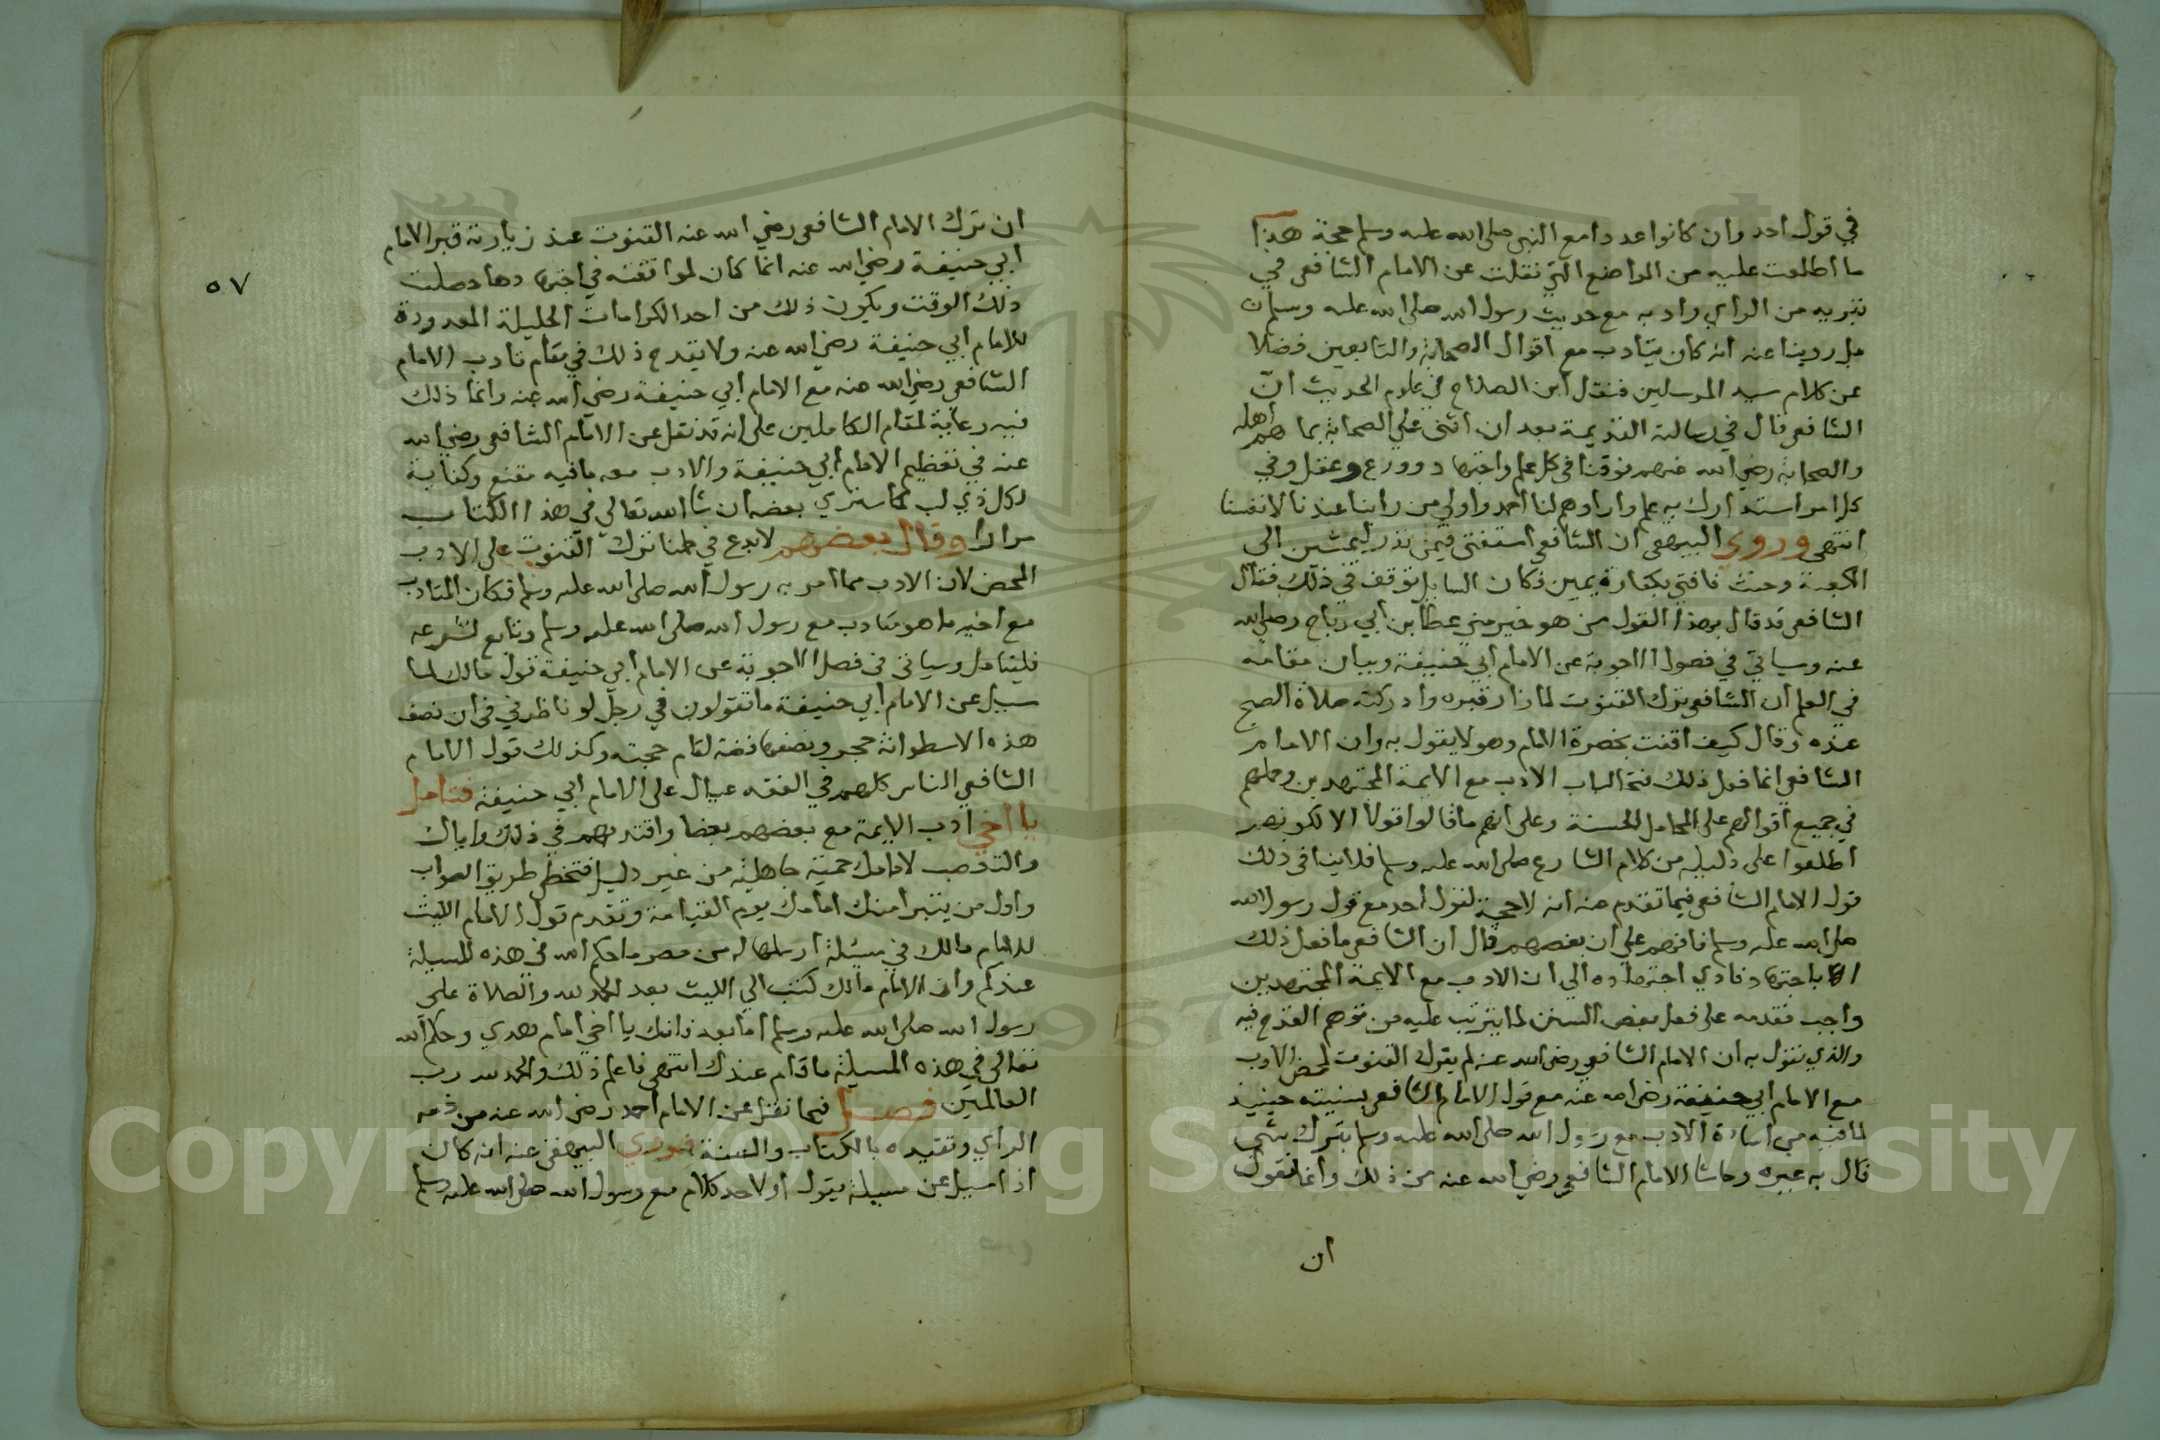 في قول احد وان كانوا عددا مع النبي صلى الله عليه وسلم حجة هذا
ما اطلعت عليه من المواضع التي نقلت عن الامام الشافعي في
تبريه من الراي وادبه مع حديث رسول الله صلى الله عليه وسلم ان
بل روينا عنه انه كان يتادب مع اقوال الصحابة والتابعين فضلا
عن كلام سيد المرسلين فنقل ابن الصلاح في علوم الحديث ان
الشافعي قال في رسالته القديمة بعد ان اثنى على الصحابة بما هم اهله
والصحابة رضي الله عنهم فوقنا في كل علم واجتهاد وورع وعقل وفي
كل امر استدرك به علم واراوهم لنا احمد واولى من راينا عندنا لانفسنا
انتهى وروى البيهقي ان الشافعي استفتى فيمن نذر ليمشين الى
الكعبة وحنث فافتى بكفارة يمين فكان السايل توقف في ذلك فقال
الشافعي قد قال بهذا القول من هو خير مني عطا بن ابي رباح رضي الله
عنه وسياتي في فصول الاجوبة عن الامام ابي حنيفة وبيان مقامه
في العلم ان الشافعي ترك القنوت لما زار قبره وادركته صلاة الصبح
عنده وقال كيف اقنت بحضرة الامام وهو لا يقول به وان الامام
الشافعي انما فعل ذلك فتحا لباب الادب مع الايمة المجتهدين وحملهم
في جميع اقوالهم على المحامل الحسنة وعلى انهم ما قالوا قولا الا لكونهم
اطلعوا على دليله من كلام الشارع صلى الله عليه وسلم فلا ينافي ذلك
قول الامام الشافعي فيما تقدم عنه انه لا حجة لقول احد مع قول رسول الله
صلى الله عليه وسلم فافهم على ان بعضهم قال ان الشافعي ما فعل ذلك
الا باجتهاد فادى اجتهاده الى ان الادب مع الايمة المجتهدين
واجب فقدمه على فعل بعض السنن لما يترتب عليه من توهم القدح فيه
والذي نقول به ان الامام الشافعي رضي الله عنه لم يقول القنوت لمحض الادب
مع الامام ابي حنيفة رضي الله عنه مع قول الامام الشافعي بسنيته حينيذ
لما فيه من اساءة الادب مع رسول الله صلى الله عليه وسلم بترك شي
قال به غيره وحاشا الامام الشافعي رضي الله عنه من ذلك وانما نقول
ان
٥٧
ان ترك الامام الشافعي رضي الله عنه القنوت عند زيارته قبر الامام
ابي حنيفة رضي الله عنه انما كان لموافقته في اجتهاد حصلت
ذلك الوقت ويكون ذلك من احد الكرامات الجليلة المعدودة
للامام ابي حنيفة رضي الله عنه ولا يقدح ذلك في مقام تادب الامام
الشافعي رضي الله عنه مع الامام ابي حنيفة رضي الله عنه وانما ذلك
فيه رعاية لمقام الكاملين على انه قد نقل عن الامام الشافعي رضي الله
عنه في تعظيم الامام ابي حنيفة والادب معه ما فيه مقنع وكفاية
لكل ذي لب كما سترى بعضه ان شا الله تعالى في هذا الكتاب
مرارا وقال بعضهم لا بدع في حملنا ترك القنوت على الادب
المحض لان الادب مما امر به رسول الله صلى الله عليه وسلم فكان المتادب
مع اخيه ما هو متادب مع رسول الله صلى الله عليه وسلم وتابع لشرعه
فليتامل وسياتي في فصل الاجوبة عن الامام ابي حنيفة قول مالك لما
سيل عن الامام ابي حنيفة ما تقولون في رجل لو ناظرني في ان نصف
هذه الاسطوانة حجر ونصفها فضة لقام حجته وكذلك قول الامام
الشافعي الناس كلهم في الفقه عيال على الامام ابي حنيفة فتامل
يا اخي ادب الايمة مع بعضهم بعضا واقتد بهم في ذلك واياك
والتعصب لامامك حمية جاهلية من غير دليل فتخطي طريق الصواب
واول من يتبرا منك امامك يوم القيامة وتقدم قول الامام الليث
للامام مالك في مسيلة ارسلها له من مصر ما حكم الله في هذه المسيلة
عندكم وان الامام مالك كتب الى الليث بعد الحمد لله والصلاة على
رسول الله صلى الله عليه وسلم اما بعد فانك يا اخي امام هدى وحكم الله
تعالى في هذه المسيلة ما قام عندك انتهى فاعلم ذلك والحمد لله رب
العالمين فصل فيما نقل عن الامام احمد رضي الله عنه من ذمه
الراي وتقيده بالكتاب والسنة فروى البيهقي عنه انه كان
اذا سيل عن مسيلة يقول او لاحد كلام مع رسول الله صلى الله عليه وسلم
Copyright © King Saud University